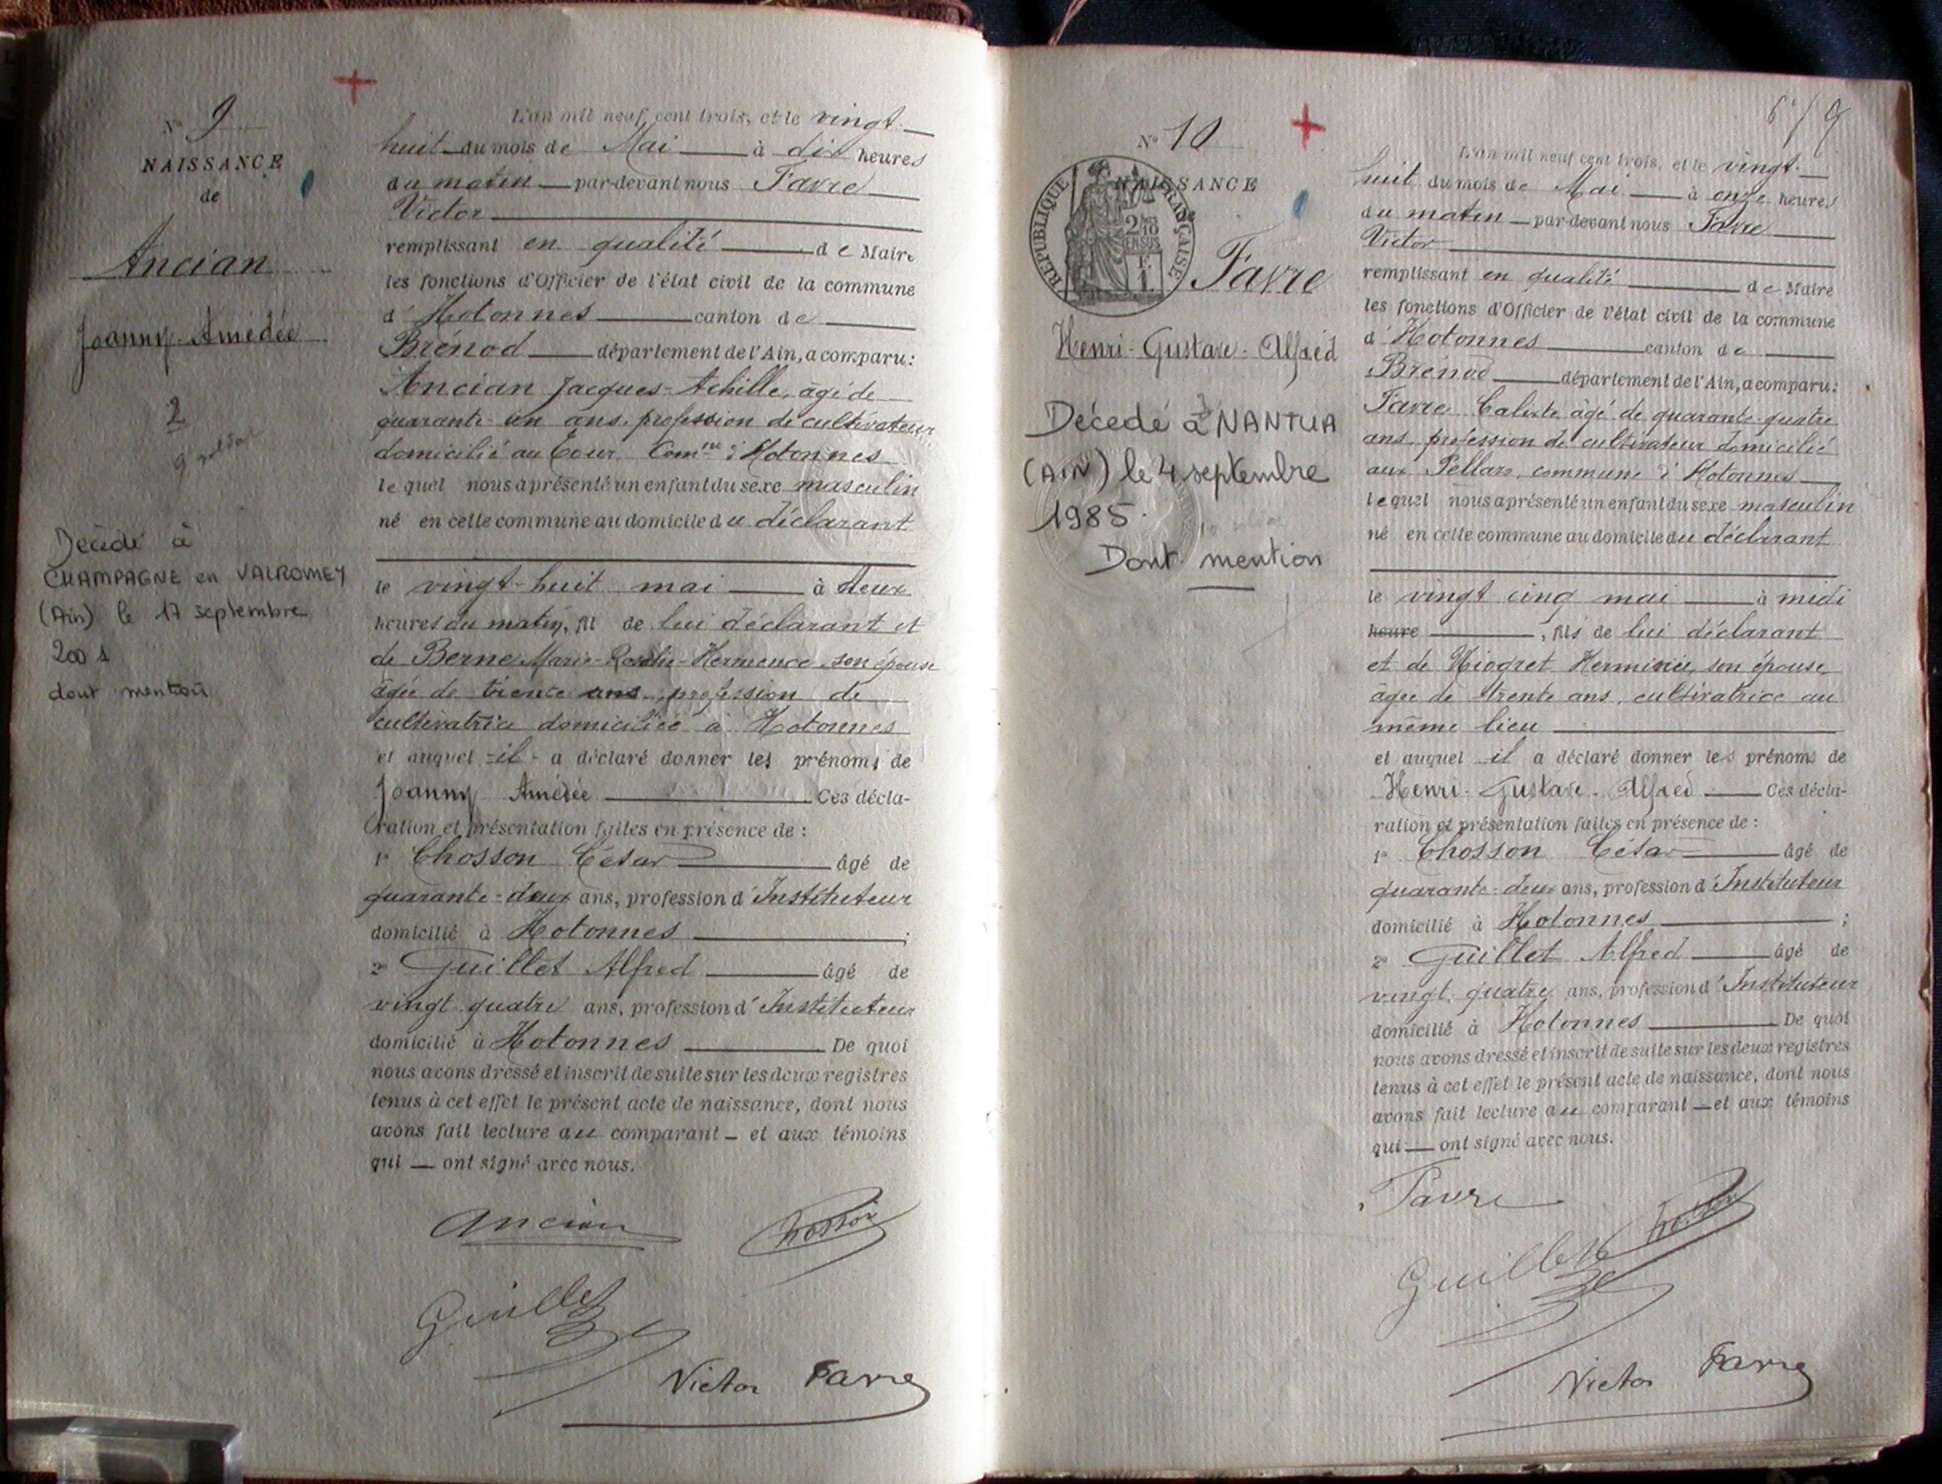 N° 9
NAISSANCE
de
Ancian
Joanny-Amédée
2
9
Décédé à
CHAMPAGNE en VALROMEY
(Ain) le 17 septembre
2001
dont mention
L'an mil neuf cent trois, et le vingt-
huit du mois de Mai à dix heures
du matin par-devant nous Favre
Victor
remplissant en qualité de Maire
les fonctions d'Officier de l'état civil de la commune
d'Hotonnes canton de
Brénod département de l'Ain, a comparu:
Ancian Jacques-Achille, âgé de
quarante-un ans, profession de cultivateur
domicilié au Cour Comne d'Hotonnes
lequel nous a présenté un enfant du sexe masculin
né en cette commune au domicile du déclarant
le vingt-huit mai à deux
heures du matin, fil de lui déclarant et
de Berne Marie-Rosalie-Hermence son épouse
âgée de trente ans, profession de
cultivatrice domiciliée à Hotonnes
et auquel il a déclaré donner les prénoms de
Joanny Amédée Ces décla-
ration et présentation faites en présence de :
1° Chosson César âgé de
quarante-deux ans, profession d'Instituteur
domicilié à Hotonnes ;
2° Guillet Alfred âgé de
vingt quatre ans, profession d'Instituteur
domicilié à Hotonnes De quoi
nous avons dressé et inscrit de suite sur les deux registres
tenus à cet effet le présent acte de naissance, dont nous
avons fait lecture au comparant et aux témoins
qui ont signé avec nous.
Ancian Chosson
Guillet
Victor Favre
6/9
N° 10
NAISSANCE
RÉPUBLIQUE FRANÇAISE
2/10
EN SUS
F.
1
Favre
Henri-Gustave-Alfred
Décédé à NANTUA
(AIN) le 4 septembre
1985.
Dont mention
L'an mil neuf cent trois, et le vingt-
huit du mois de Mai à onze heures
du matin par-devant nous Favre
Victor
remplissant en qualité de Maire
les fonctions d'Officier de l'état civil de la commune
d'Hotonnes canton de
Brénod département de l'Ain, a comparu:
Favre Calixte âgé de quarante-quatre
ans profession de cultivateur domicilié
aux Pellaz, commune d'Hotonnes
lequel nous a présenté un enfant du sexe masculin
né en cette commune au domicile du déclarant
le vingt cinq mai à midi
heure, fils de lui déclarant
et de Niogret Herminie, son épouse,
âgée de trente ans, cultivatrice au
même lieu
et auquel il a déclaré donner les prénoms de
Henri-Gustave-Alfred Ces décla-
ration et présentation faites en présence de :
1° Chosson César âgé de
quarante-deux ans, profession d'Instituteur
domicilié à Hotonnes ;
2° Guillet Alfred âgé de
vingt quatre ans, profession d'Instituteur
domicilié à Hotonnes De quoi
nous avons dressé et inscrit de suite sur les deux registres
tenus à cet effet le présent acte de naissance, dont nous
avons fait lecture au comparant et aux témoins
qui ont signé avec nous.
Favre Chosson
Guillet
Victor Favre